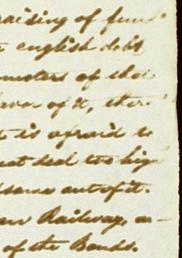 raising of fun
english debt
moters of the
favor of it, ther
is afraid to
eat deal too hig
same out of it.
Railway,
of the Bonds.